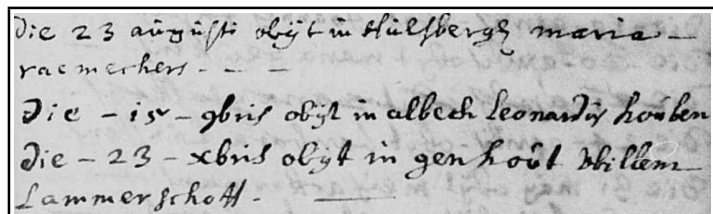 die 23 augusti obijt in Hulsbergh maria –
raemeckers. – –
Die – 15 – 9bris obijt in albeck Leonardus houben
die – 23 – xbris obijt in gen hoút Willem
Lammerschott. –